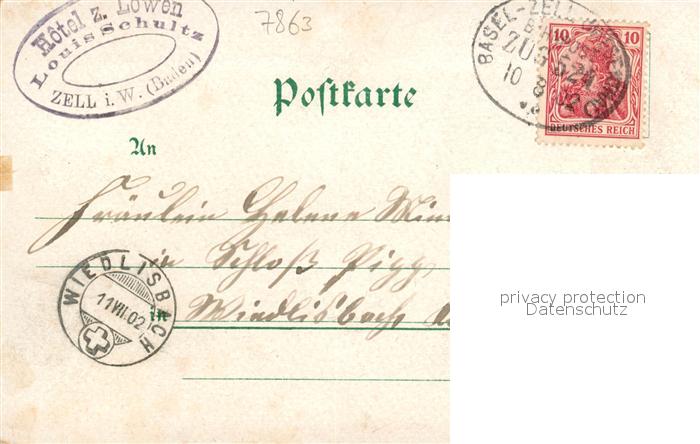 Hôtel z. Löwen
Louis Schultz
ZELL i. W. (Baden)
7863
BASEL-ZELL
ZUG 524
10 8
10 10
DEUTSCHES REICH
Postkarte
An
Fräulein Helene
in Schloß
in Wiedlisbach
WIEDLISBACH
11 VII. 02
privacy protection
Datenschutz